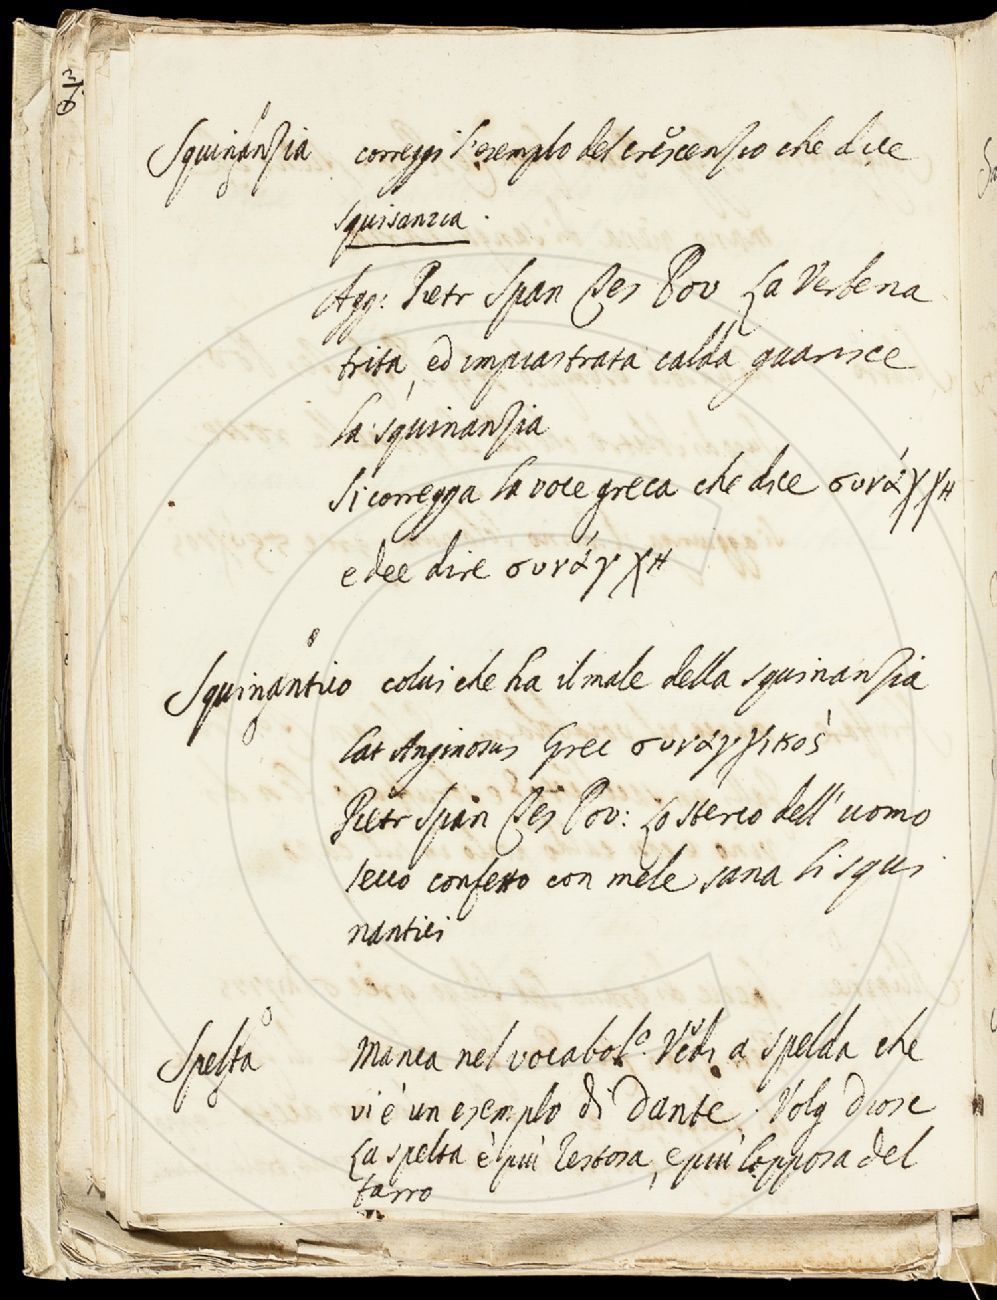 Squinanzia correggi l'esemplo del crescenzio che dice
squisanzia.
Agg: Pietr Span Tes Pov La Verbena
trita, ed impiastrata calda guarisce
la squinanzia
Si corregga la voce greca che dice συνάγγη
e dee dire συνάγχη
Squinantico colui che ha il male della squinanzia
Lat Anginosus Grec συναγχικός
Pietr Span Tes Pov: Lo sterco dell'uomo
secco confetto con mele sana li squi
nantici
Spelta Manca nel vocabolo. Vedi a spelda che
vi è un esemplo di Dante. Volg Diosc
La spelta è più , e più del
farro